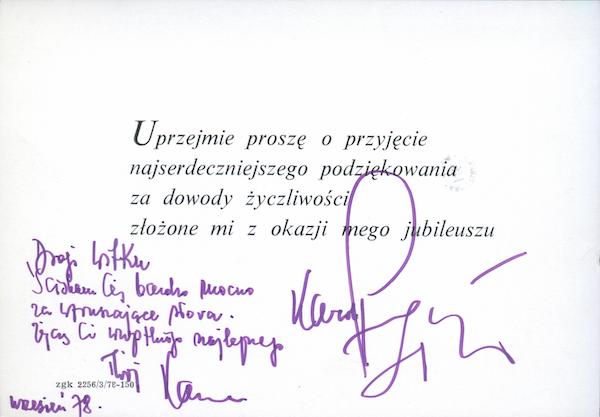 Uprzejmie proszę o przyjęcie
najserdeczniejszego podziękowania
za dowody życzliwości
złożone mi z okazji mego jubileuszu
Drogi Witku
Ściskam Cię bardzo mocno
za wzruszające słowa.
Życzę Ci wszystkiego najlepszego
Twój
Karol
zgk 2256/3/78-150
wrzesień 78.